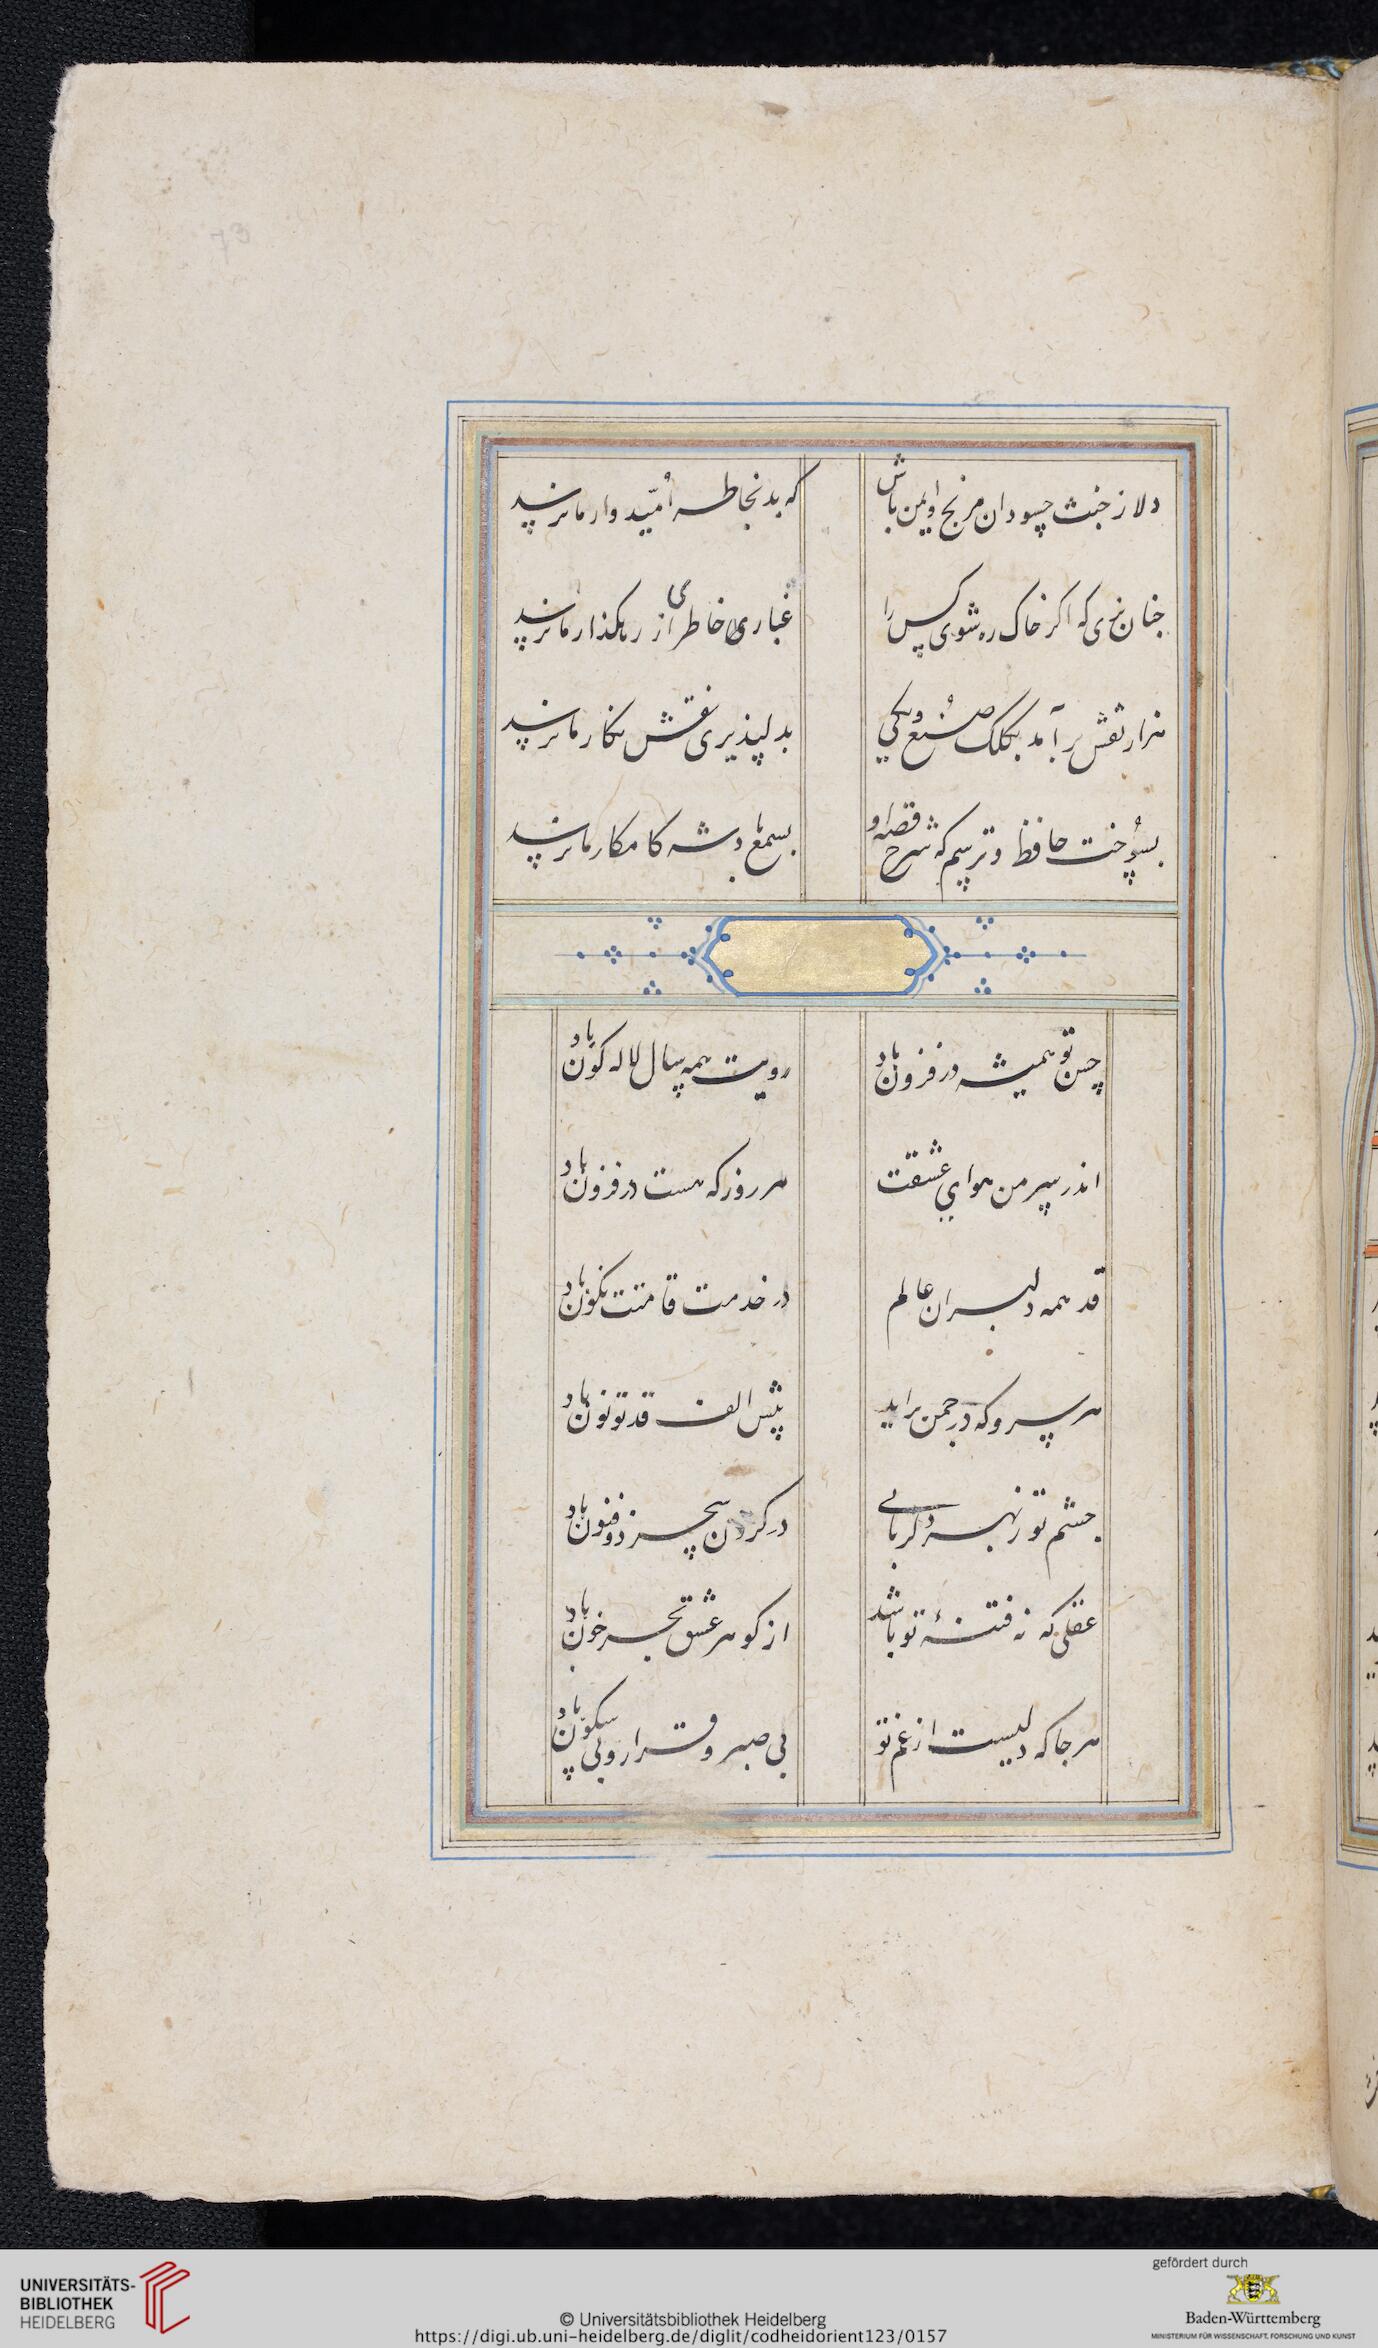 دلا ز خبث حسودان مرنج و ایمن باش
که بد بخاطر امّیدوار ما نرسد
چنان بزی که اگر خاک ره شوی کس را
غباری خاطری از رهکذار ما نرسد
هزار نقش برآمد بکلک صنع و یکی
بدلپذیری نقش نکار ما نرسد
بسوخت حافظ و ترسم که شرح قصه او
بسمع پادشه کامکار ما نرسد
حسن تو همیشه در فزون باد
رویت همه سال لاله کون باد
اندر سر من هوای عشقت
هر روز که هست در فزون باد
قد همه دلبران عالم
در خدمت قامتت نکون باد
هر سرو که در چمن براید
پیش الف قدت نون باد
چشم تو ز بهر دلربایی
در کردن سحر ذوفنون باد
عقلی که نه فتنهٔ تو باشد
از کوهر عشق بحر خون باد
هر جا که دلیست از غم تو
بی صبر و قرار و بی سکون باد
UNIVERSITÄTS-
BIBLIOTHEK
HEIDELBERG
© Universitätsbibliothek Heidelberg
https://digi.ub.uni-heidelberg.de/diglit/codheidorient123/0157
gefördert durch
Baden-Württemberg
MINISTERIUM FÜR WISSENSCHAFT, FORSCHUNG UND KUNST